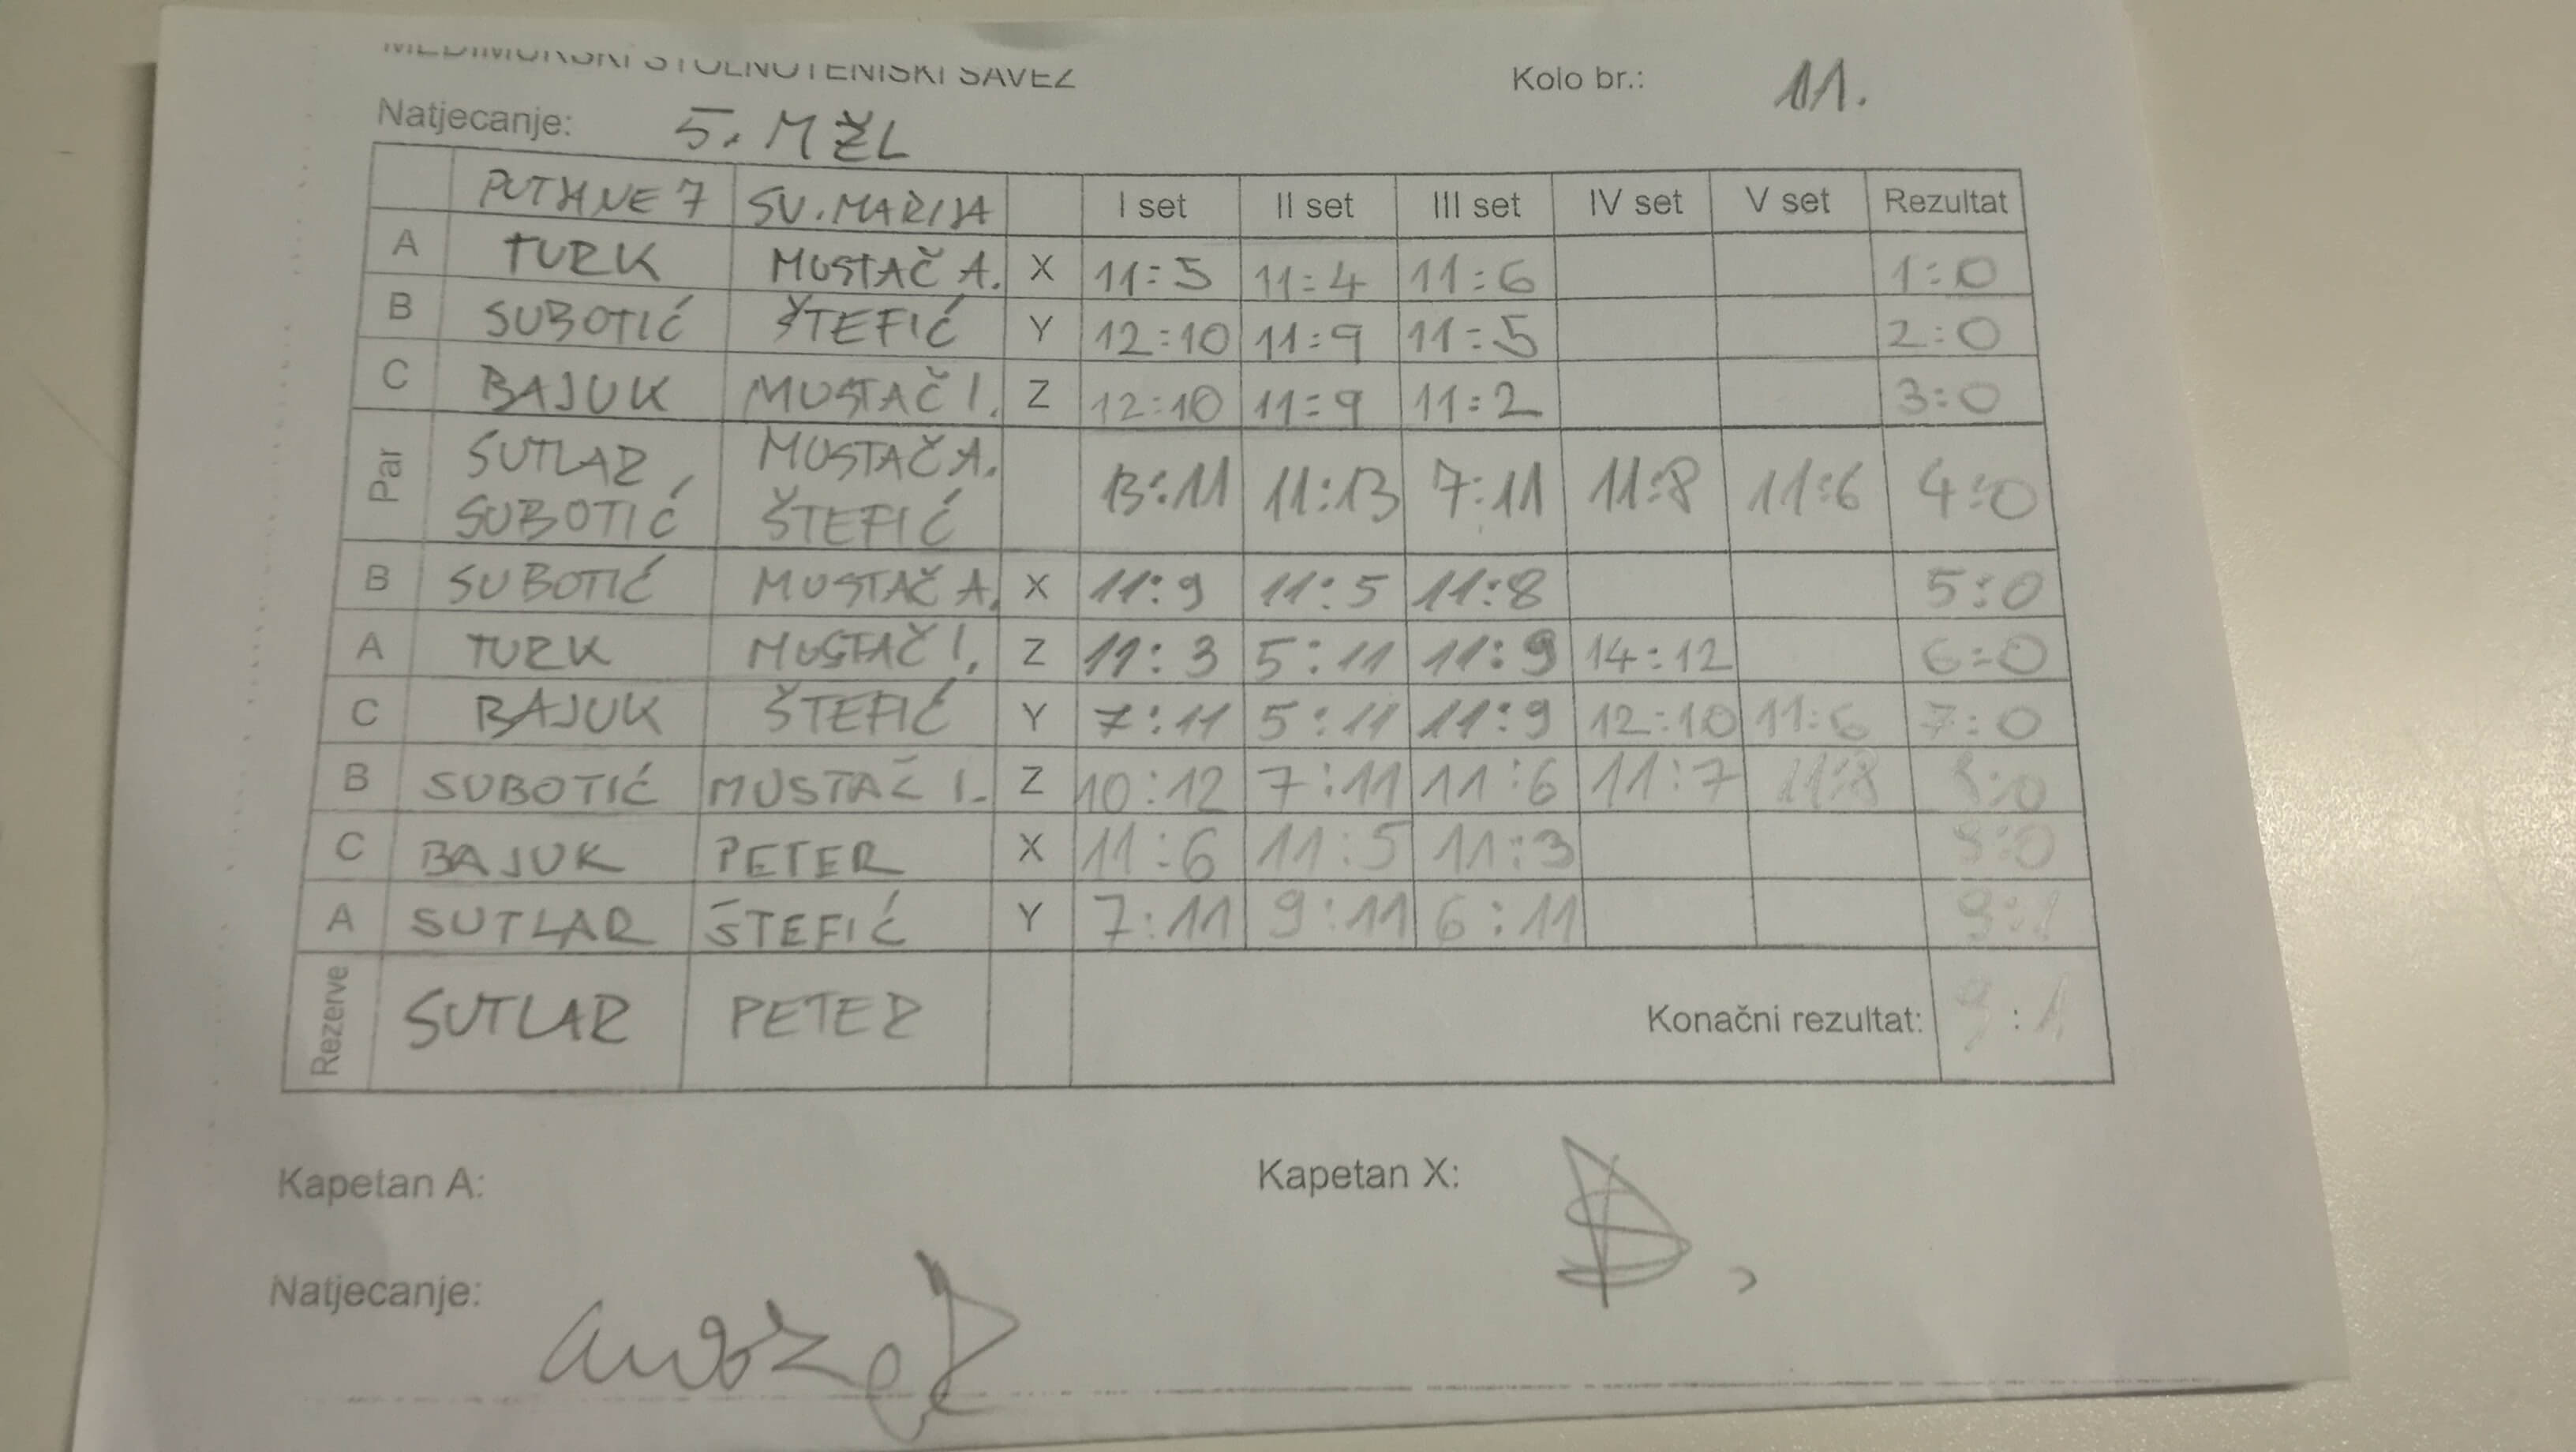 MEĐIMURSKI STOLNOTENISKI SAVEZ
Kolo br.: 11.
Natjecanje: 5. MŽL
PUTJANE 7 SV. MARIJA I set II set III set IV set V set Rezultat
A TURK MUSTAČ A. X 11:5 11:4 11:6 1:0
B SUBOTIĆ ŠTEFIĆ Y 12:10 11:9 11:5 2:0
C BAJUK MUSTAČ I. Z 12:10 11:9 11:2 3:0
Par SUTLAR, MUSTAČ A.
SUBOTIĆ ŠTEFIĆ 13:11 11:13 7:11 11:8 11:6 4:0
B SUBOTIĆ MUSTAČ A. X 11:9 11:5 11:8 5:0
A TURK MUSTAČ I. Z 11:3 5:11 11:9 14:12 6:0
C BAJUK ŠTEFIĆ Y 7:11 5:11 11:9 12:10 11:6 7:0
B SUBOTIĆ MUSTAČ I. Z 10:12 7:11 11:6 11:7 11:8 8:0
C BAJUK PETER X 11:6 11:5 11:3 9:0
A SUTLAR ŠTEFIĆ Y 7:11 9:11 6:11 9:1
Rezerve SUTLAR PETER Konačni rezultat: 9:1
Kapetan A: Kapetan X:
Natjecanje: